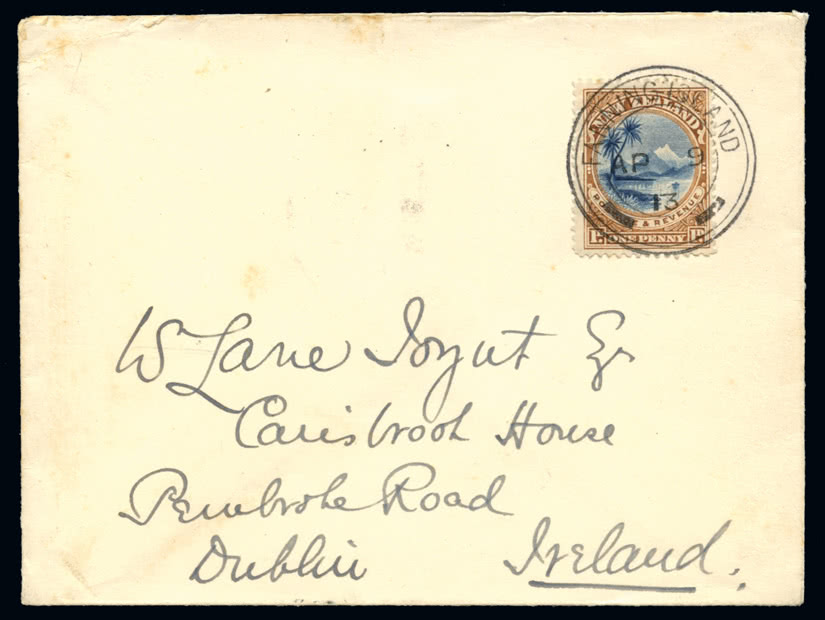 FANNING ISLAND
AP 9
13
NEW ZEALAND
POSTAGE & REVENUE
1D ONE PENNY 1D
W Lane Joynt Esqr
Carisbrook House
Pembroke Road
Dublin Ireland.